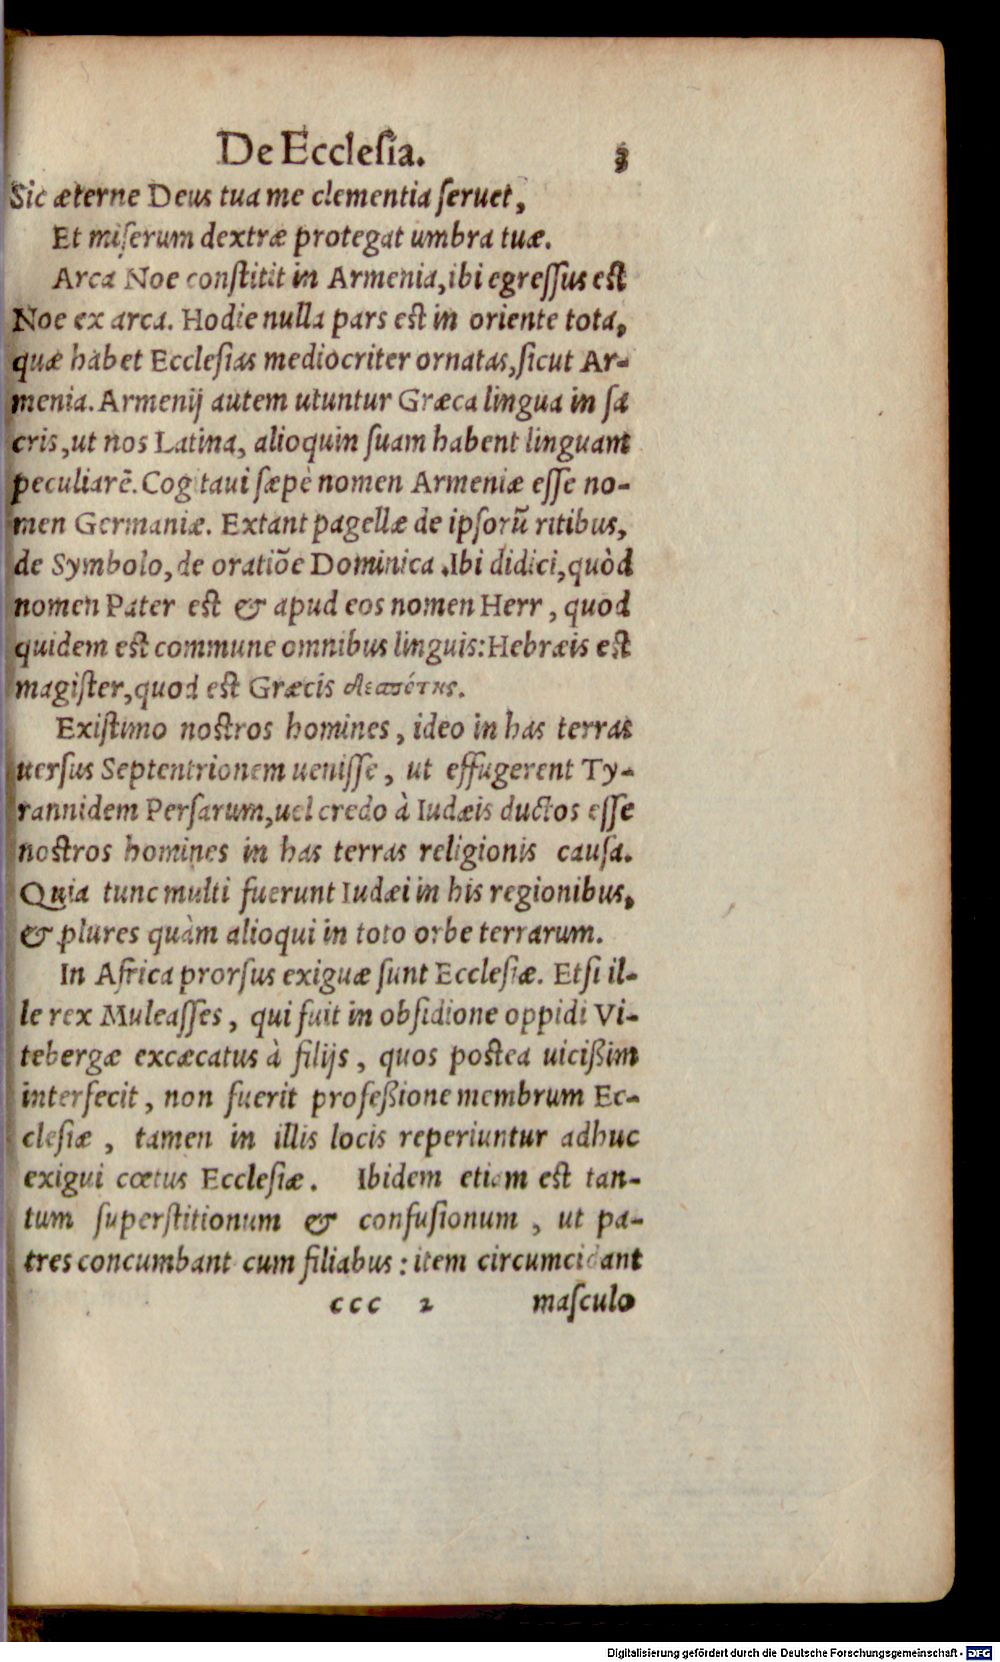 De Ecclesia. 3
Sic æterne Deus tua me clementia ſeruet,
Et miſerum dextræ protegat umbra tuæ.
Arca Noe conſtitit in Armenia, ibi egreſſus est
Noe ex arca. Hodie nulla pars est in oriente tota,
quæ habet Eccleſias mediocriter ornatas, ſicut Ar-
menia. Armenij autem utuntur Græca lingua in ſa
cris, ut nos Latina, alioquin ſuam habent linguam
peculiarẽ. Cogitaui ſæpè nomen Armeniæ eſſe no-
men Germaniæ. Extant pagellæ de ipſorũ ritibus,
de Symbolo, de oratiõe Dominica. Ibi didici, quòd
nomen Pater est & apud eos nomen Herr, quod
quidem est commune omnibus linguis: Hebræis est
magiſter, quod est Græcis δεσπότης.
Exiſtimo nostros homines, ideo in has terras
uerſus Septentrionem ueniſſe, ut effugerent Ty-
rannidem Perſarum, uel credo à Iudæis ductos eſſe
nostros homines in has terras religionis cauſa.
Quia tunc multi fuerunt Iudæi in his regionibus,
& plures quàm alioqui in toto orbe terrarum.
In Africa prorſus exiguæ ſunt Eccleſiæ. Etſi il-
le rex Muleaſſes, qui fuit in obſidione oppidi Vi-
tebergæ excæcatus à filijs, quos postea uicißim
interfecit, non fuerit profeßione membrum Ec-
cleſiæ, tamen in illis locis reperiuntur adhuc
exigui cœtus Eccleſiæ. Ibidem etiam est tan-
tum ſuperſtitionum & confuſionum, ut pa-
tres concumbant cum filiabus: item circumcidant
ccc 2 maſculo
Digitalisierung gefördert durch die Deutsche Forschungsgemeinschaft - DFG